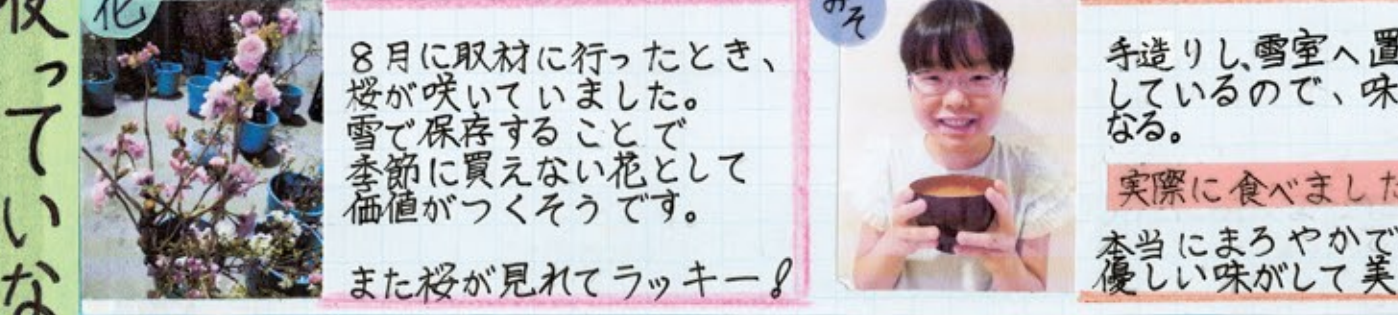 っていな
花
8月に取材に行ったとき、
桜が咲いていました。
雪で保存することで
季節に買えない花として
価値がつくそうです。
また桜が見れてラッキー!
みそ
手造りし、雪室へ置
しているので、味
なる。
実際に食べました
本当にまろやかで
優しい味がして美